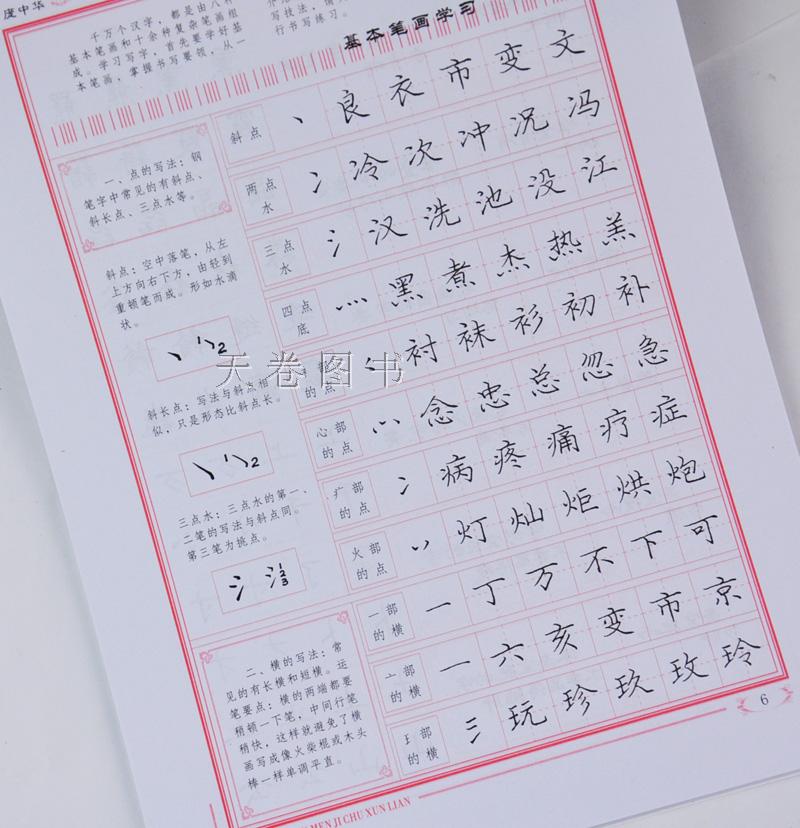 庞中华
千万个汉字，都是由八种
基本笔画和十余种复杂笔画组
成。学习写字，首先要学好基
本笔画，掌握书写要领，从一
写技法，请
行书写练习。
基本笔画学习
一、点的写法：钢
笔字中常见的有斜点、
斜长点、三点水等。
斜点：空中落笔，从左
上方向右下方，由轻到
重顿笔而成。形如水滴
状。
斜长点：写法与斜点相
似，只是形态比斜点长。
三点水：三点水的第一、
二笔的写法与斜点同。
第三笔为挑点。
二、横的写法：常
见的有长横和短横。运
笔要点：横的两端都要
稍顿一下笔，中间行笔
稍快，这样就避免了横
画写成像火柴棍或木头
棒一样单调平直。
斜点 丶 良 衣 市 变 文
两点水 冫 冷 次 冲 况 冯
三点水 氵 汉 洗 池 没 江
四点底 灬 黑 煮 杰 热 羔
的点 衬 袜 衫 初 补
心部的点 念 忠 总 忽 急
疒部的点 冫 病 疼 痛 疗 症
火部的点 灯 灿 炬 烘 炮
一部的横 一 丁 万 不 下 可
亠部的横 一 六 亥 变 市 京
王部的横 三 玩 珍 玖 玫 玲
天卷图书
6
MEN JI CHU XUN LIAN